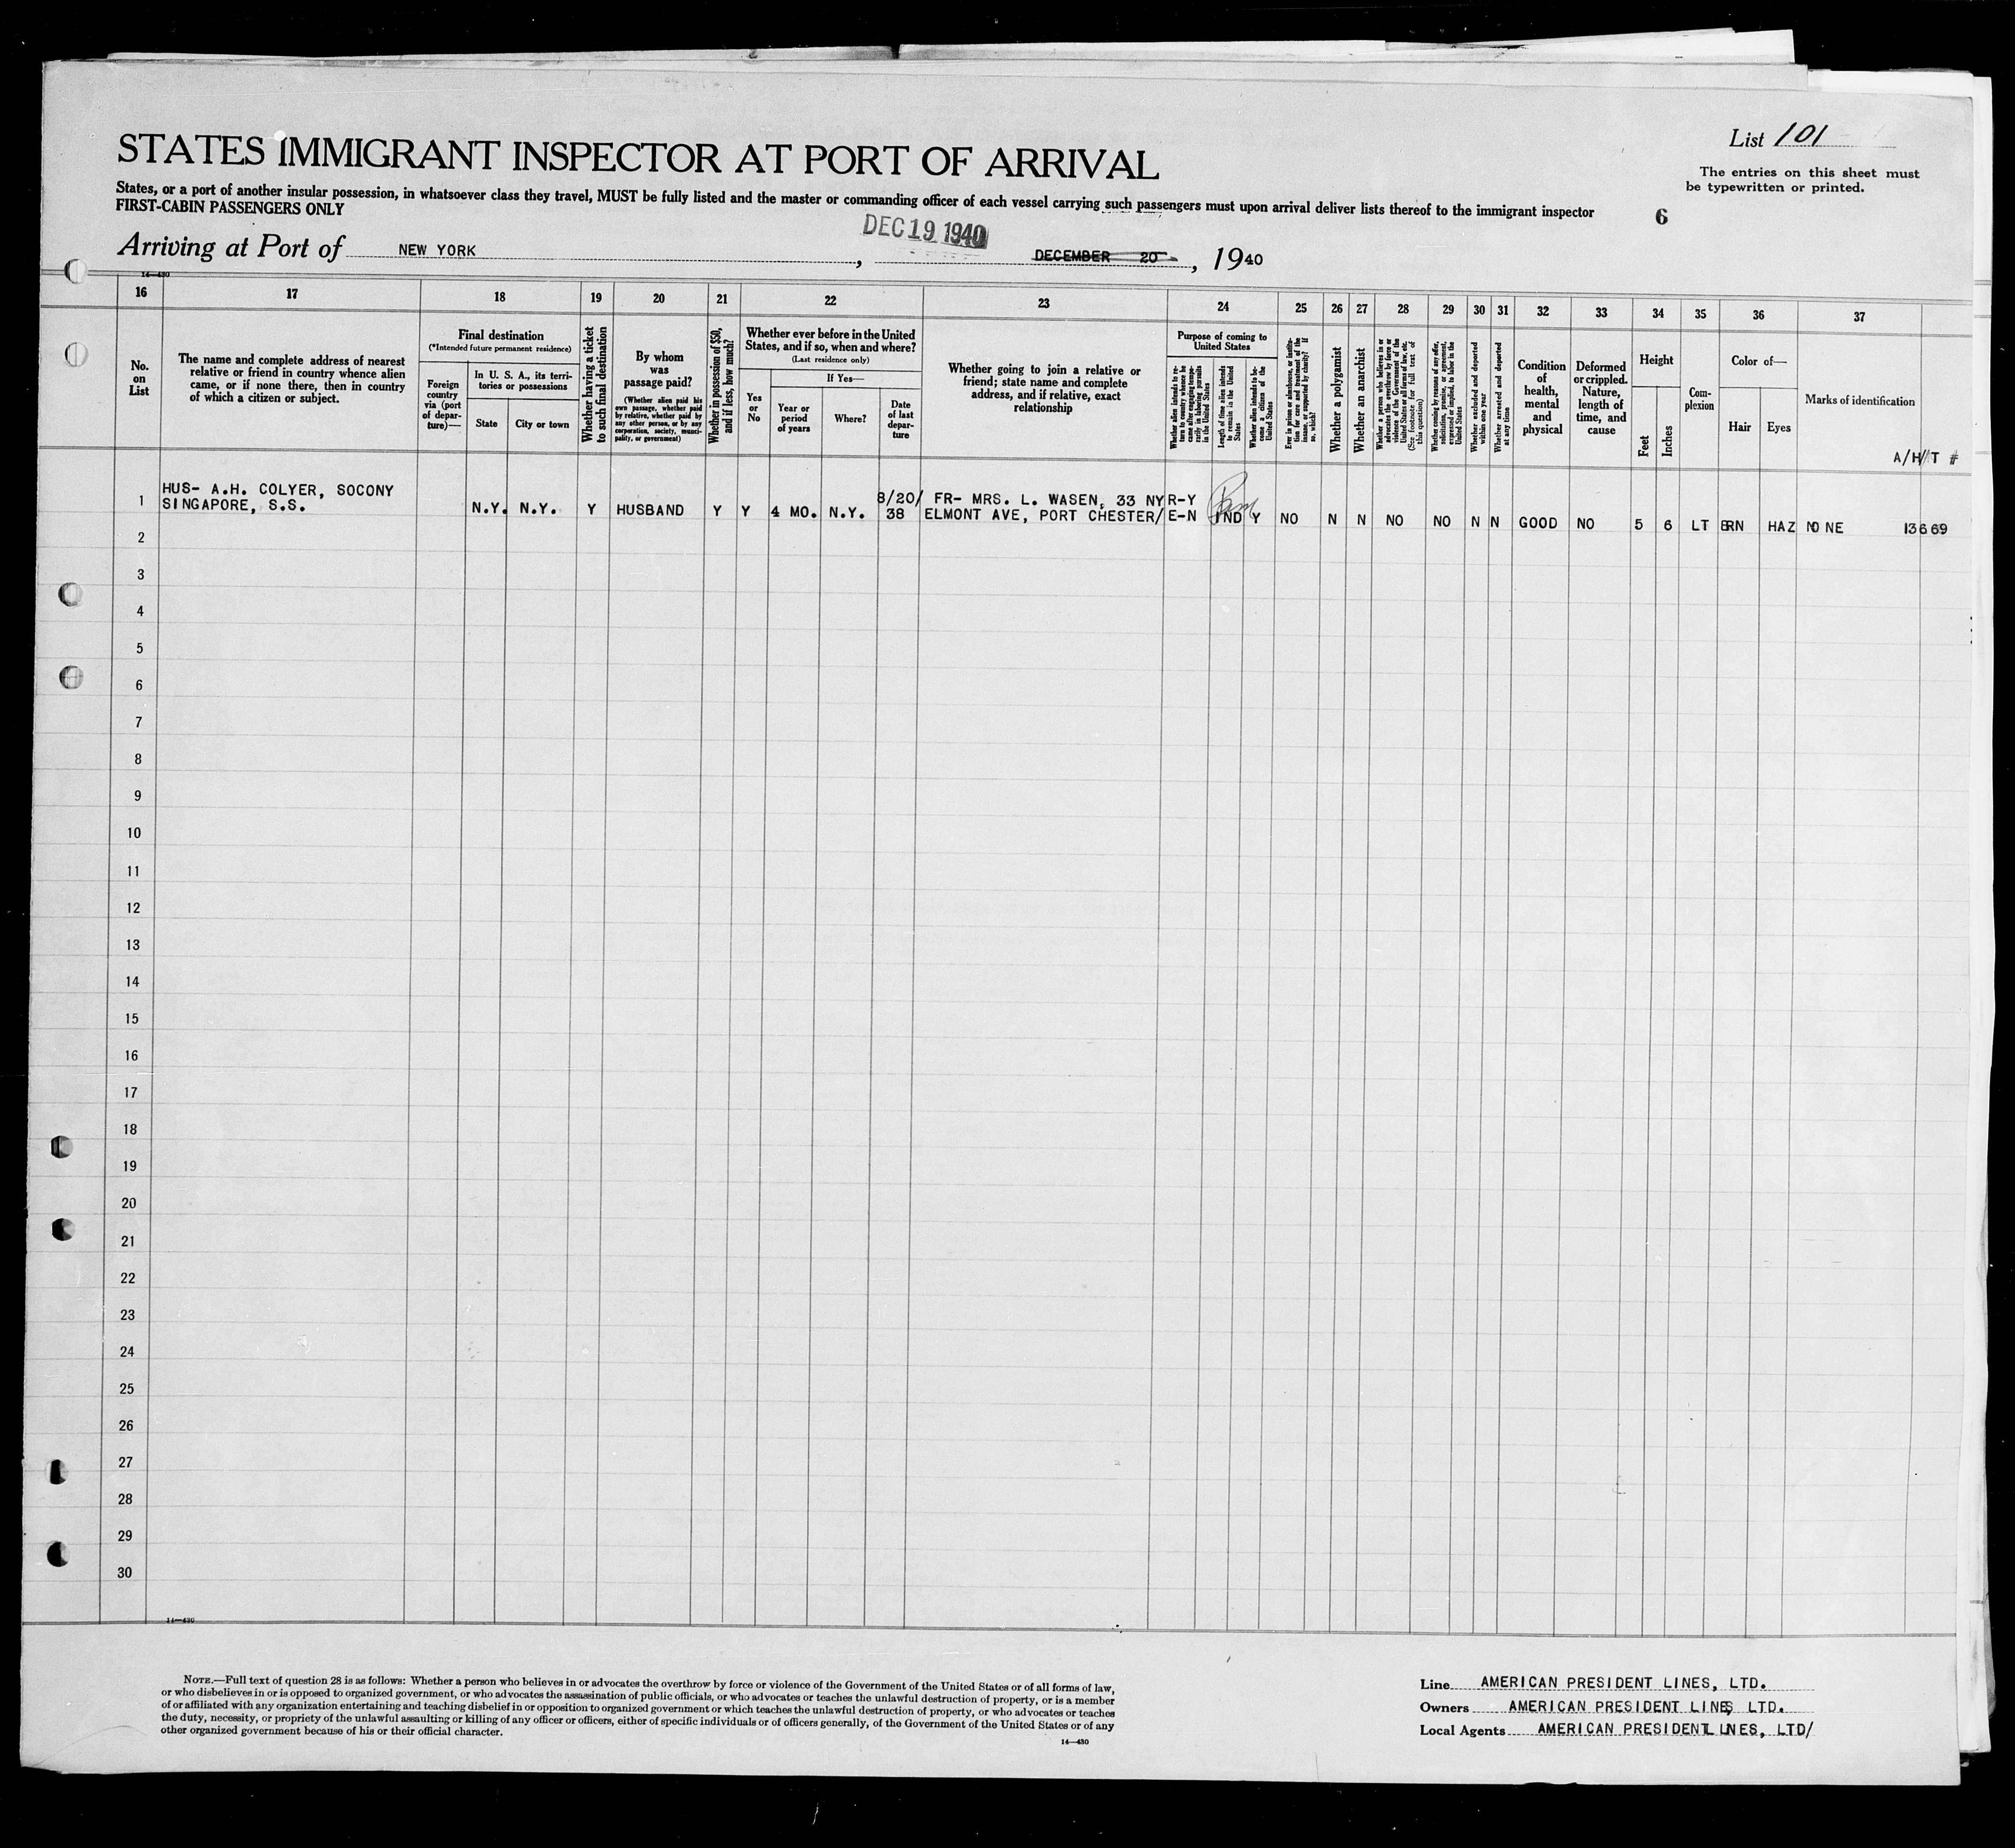 List 101
The entries on this sheet must
be typewritten or printed.
STATES IMMIGRANT INSPECTOR AT PORT OF ARRIVAL
States, or a port of another insular possession, in whatsoever class they travel, MUST be fully listed and the master or commanding officer of each vessel carrying such passengers must upon arrival deliver lists thereof to the immigrant inspector
FIRST-CABIN PASSENGERS ONLY
6
DEC 19 1940
Arriving at Port of NEW YORK, DECEMBER 20, 1940
14—430
16 17 18 19 20 21 22 23 24 25 26 27 28 29 30 31 32 33 34 35 36 37
No.
on
List
The name and complete address of nearest
relative or friend in country whence alien
came, or if none there, then in country
of which a citizen or subject.
Final destination
(*Intended future permanent residence)
Foreign
country
via (port
of depar-
ture)—
In U. S. A., its terri-
tories or possessions
State
City or town
Whether having a ticket
to such final destination
By whom
was
passage paid?
(Whether alien paid his
own passage, whether paid
by relative, whether paid by
any other person, or by any
corporation, society, munici-
pality, or government)
Whether in possession of $50,
and if less, how much?
Whether ever before in the United
States, and if so, when and where?
(Last residence only)
Yes
or
No
If Yes—
Year or
period
of years
Where?
Date
of last
depar-
ture
Whether going to join a relative or
friend; state name and complete
address, and if relative, exact
relationship
Purpose of coming to
United States
Whether alien intends to re-
turn to country whence he
came after engaging tempo-
rarily in laboring pursuits
in the United States
Length of time alien intends
to remain in the United
States
Whether alien intends to be-
come a citizen of the
United States
Ever in prison or almshouse, or institu-
tion for care and treatment of the
insane, or supported by charity? If
so, which?
Whether a polygamist
Whether an anarchist
Whether a person who believes in or
advocates the overthrow by force or
violence of the Government of the
United States or all forms of law, etc.
(See footnote for full text of
this question)
Whether coming by reasons of any offer,
solicitation, promise, or agreement,
expressed or implied, to labor in the
United States
Whether excluded and deported
within one year
Whether arrested and deported
at any time
Condition
of
health,
mental
and
physical
Deformed
or crippled.
Nature,
length of
time, and
cause
Height
Feet
Inches
Com-
plexion
Color of—
Hair
Eyes
Marks of identification
A/H/T #
HUS- A.H. COLYER, SOCONY 8/20/ FR- MRS. L. WASEN, 33 NY R-Y
1 SINGAPORE, S.S. N.Y. N.Y. Y HUSBAND Y Y 4 MO. N.Y. 38 ELMONT AVE, PORT CHESTER/ E-N IND Y NO N N NO NO N N GOOD NO 5 6 LT BRN HAZ NONE 13669
2
3
4
5
6
7
8
9
10
11
12
13
14
15
16
17
18
19
20
21
22
23
24
25
26
27
28
29
30
14—430
NOTE.—Full text of question 28 is as follows: Whether a person who believes in or advocates the overthrow by force or violence of the Government of the United States or of all forms of law,
or who disbelieves in or is opposed to organized government, or who advocates the assassination of public officials, or who advocates or teaches the unlawful destruction of property, or is a member
of or affiliated with any organization entertaining and teaching disbelief in or opposition to organized government or which teaches the unlawful destruction of property, or who advocates or teaches
the duty, necessity, or propriety of the unlawful assaulting or killing of any officer or officers, either of specific individuals or of officers generally, of the Government of the United States or of any
other organized government because of his or their official character.
14—430
Line AMERICAN PRESIDENT LINES, LTD.
Owners AMERICAN PRESIDENT LINES, LTD.
Local Agents AMERICAN PRESIDENT LINES, LTD/